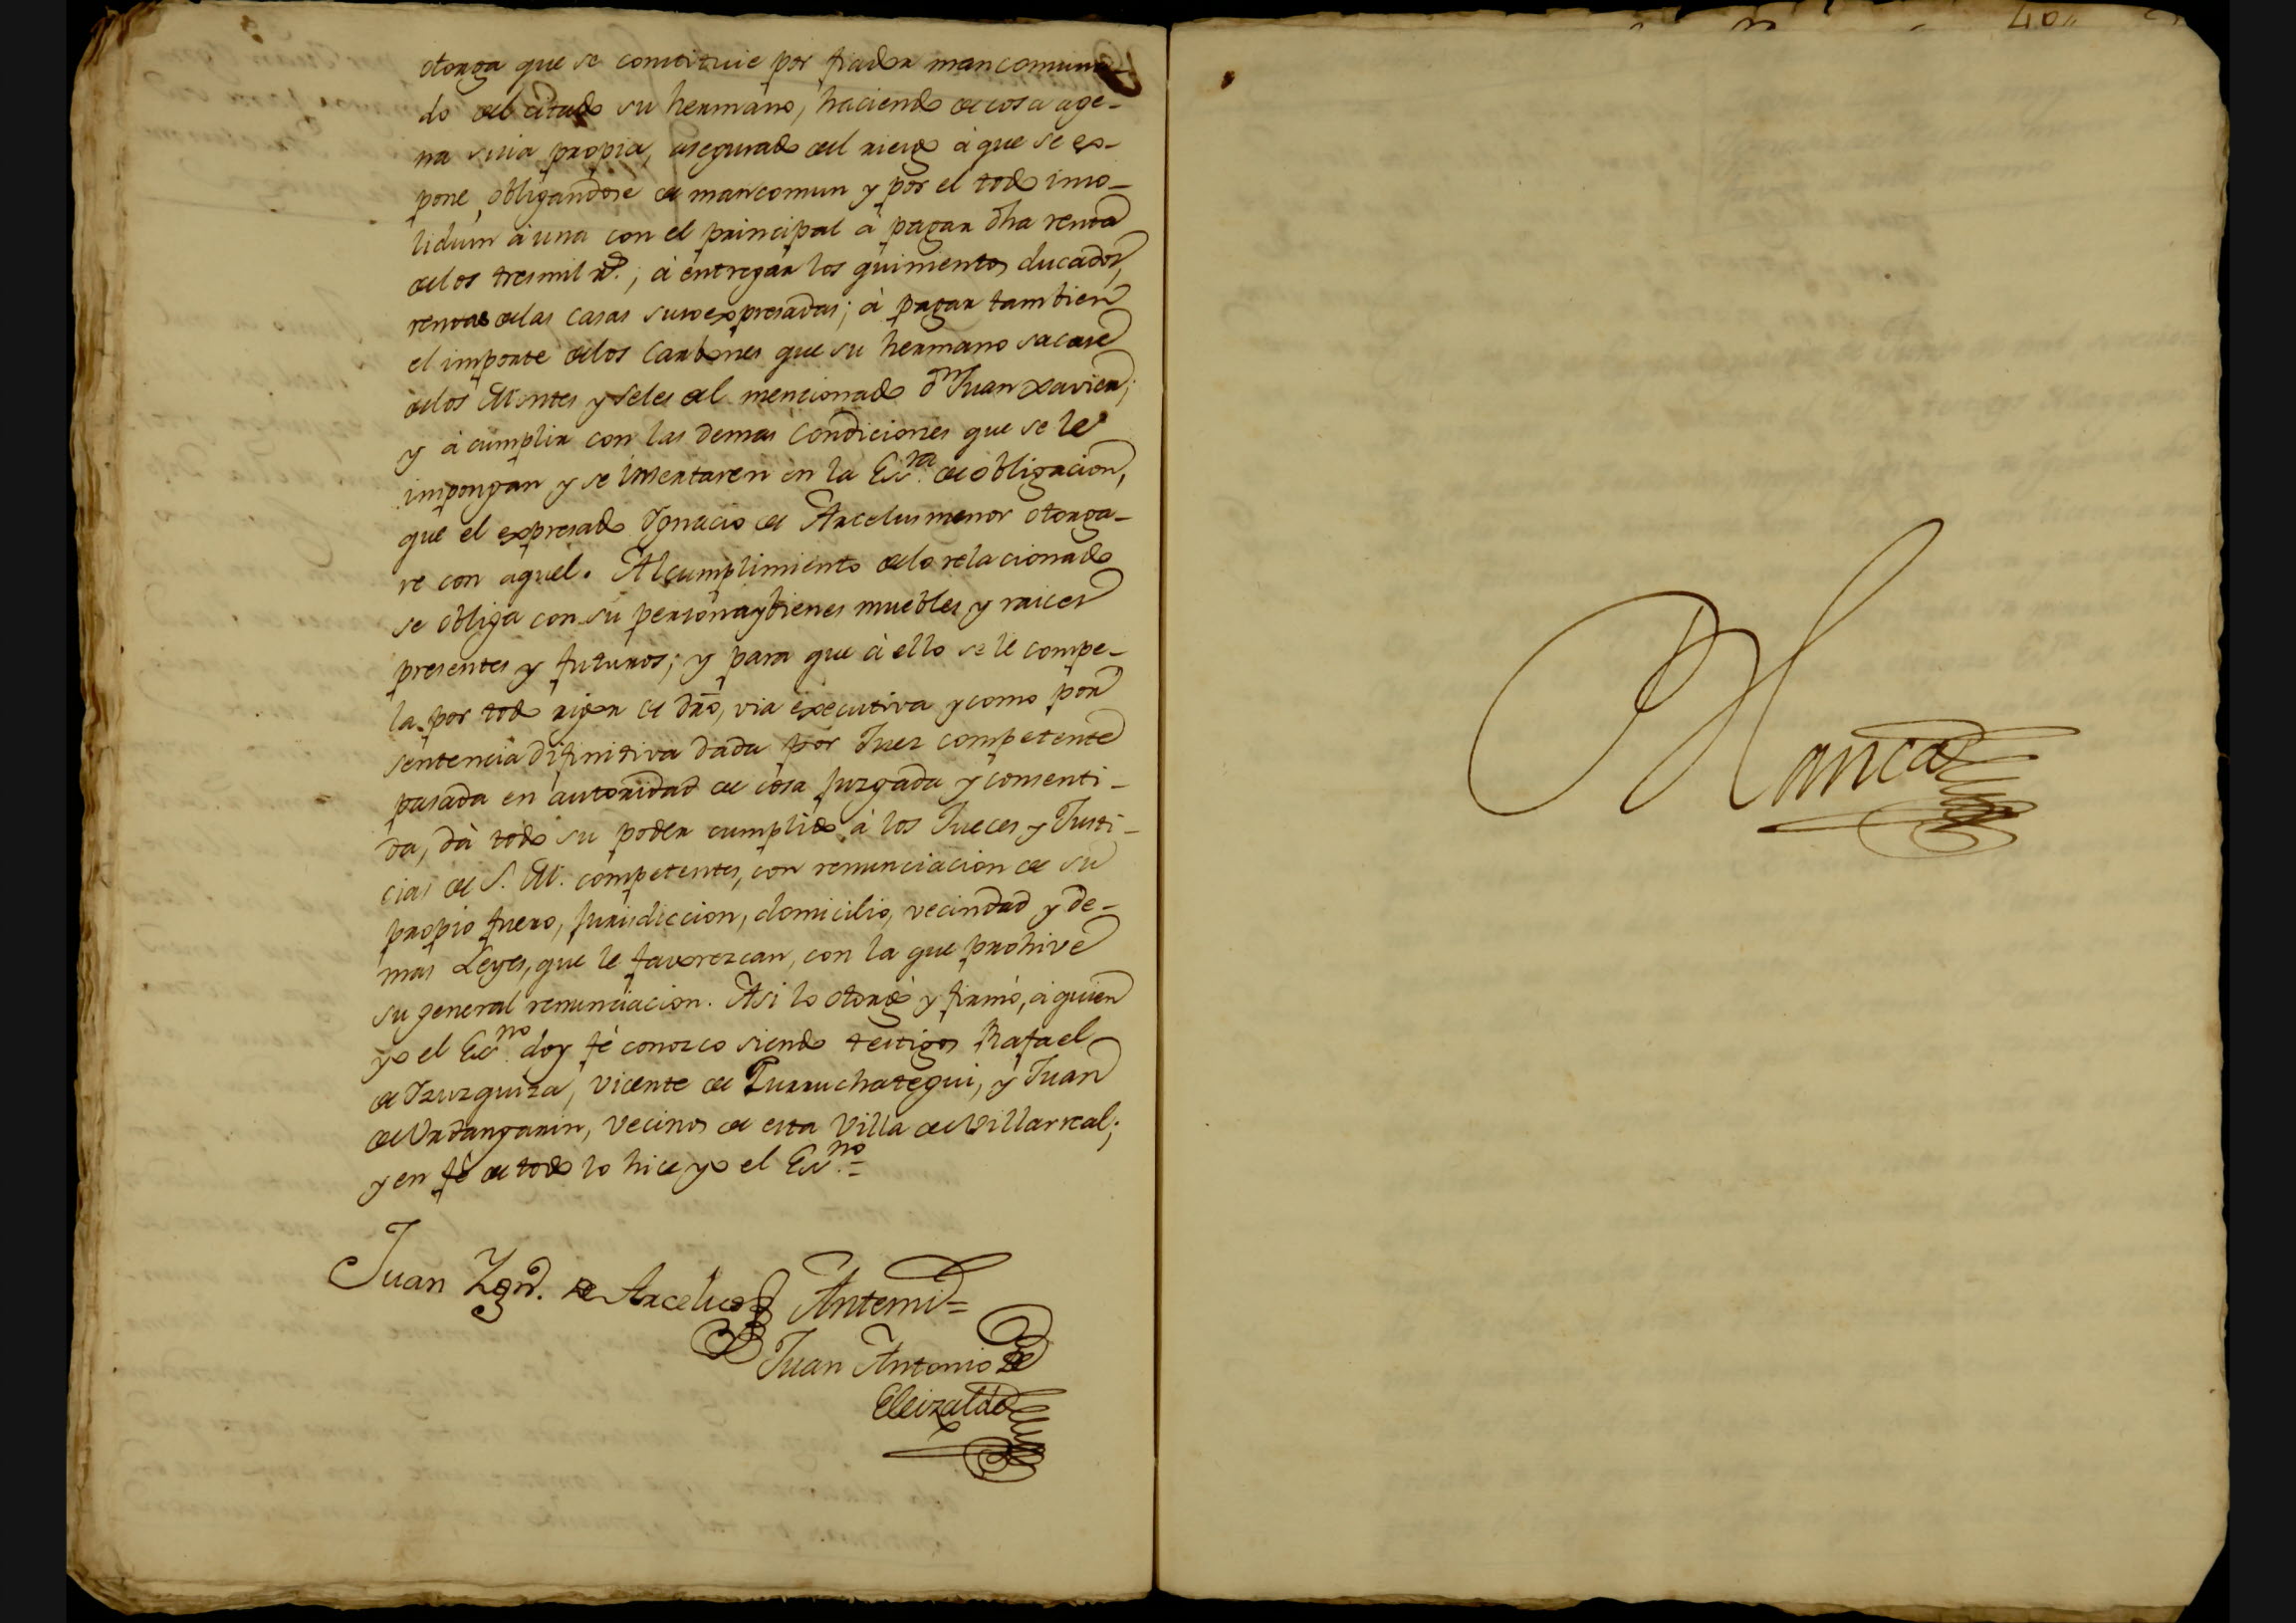 otorga que se constituie por fiador mancomuna-
do del citado su hermano, haciendo de cosa age-
na suia propia, asegurado del riesgo á que se ex-
pone, obligandose de mancomun y por el todo inso-
lidum á una con el principal á pagar dha renta
de los tresmil rs.; á entregar los quinientos ducados,
rentas de las casas susoexpresadas; á pagar tambien
el importe de los Carbones que su hermano sacase
de los Montes y Seles del mencionado Dn Juan Xavier;
y á cumplir con las demas Condiciones que se le
impongan y se insertaren en la Essra. de obligacion,
que el expresado Ygnacio de Arcelus menor otorga-
re con aquel. Al cumplimiento de lo relacionado
se obliga con su persona y bienes muebles y raices
presentes y futuros; y para que á ello se le compe-
la por todo rigor de dro, via executiva y como por
sentencia difinitiva dada por Juez competente
pasada en autoridad de cosa juzgada y consenti-
da, dá todo su poder cumplido á los Jueces y Justi-
cias de S. M. competentes, con renunciacion de su
propio fuero, jurisdiccion, domicilio, vecindad y de-
mas Leyes, que le favorezcan, con la que prohive
su general renunciacion. Asi lo otorgó y firmó, á quien
yo el Essno. doy fé conozco siendo testigos Rafael
de Yzuzquiza, Vicente de Zurruchategui, y Juan
de Urdangarin, Vecinos de esta Villa de Villarreal;
y en fé de todo lo hice yo el Essno.=
Juan Ygno. de Arcelus Antemi=
Juan Antonio de
Eleizalde
Blanca